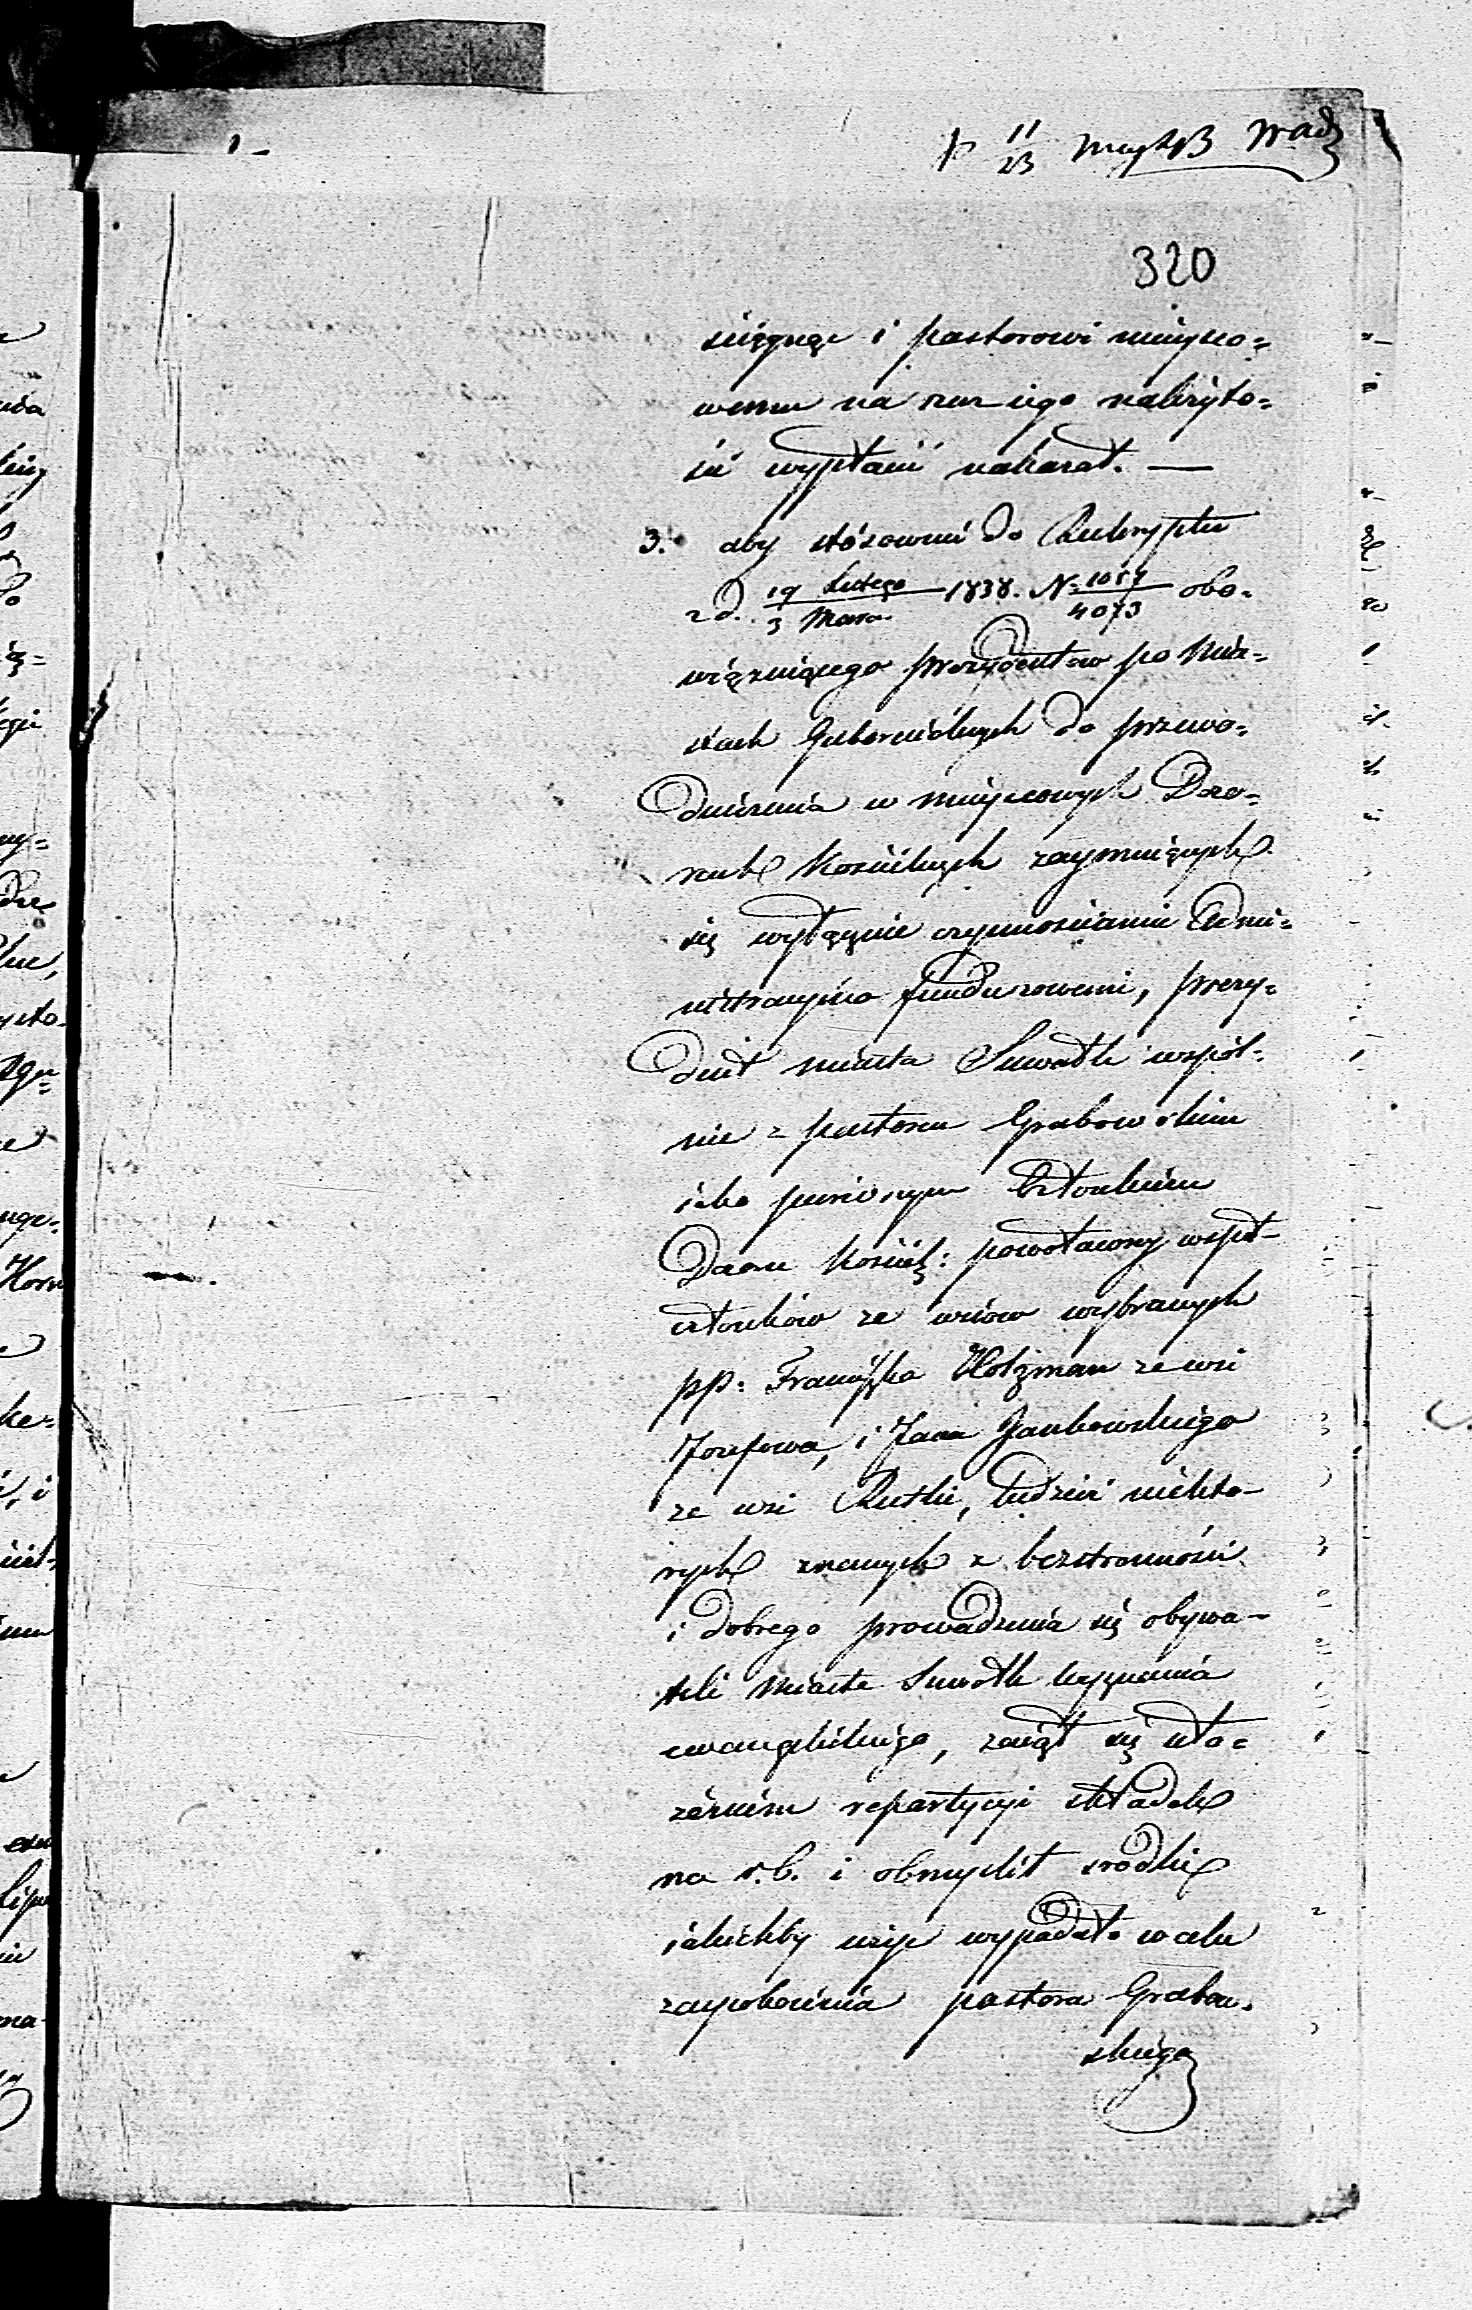 320
sciągnąć i pastorowi miejsco=
wemu na rzecz iego należyto=
ści wypłacić nakazał. —
3. aby stósownie do Reskryptu
z d. 19 Lutego / 3 Marca 1838. N. 1057 / 4073 obo=
wiązuiącego prezydentów po Mia=
stach Gubernialnych do przewo=
dniczenia w mieyscowych Dozo=
rach Kościelnych zaymuiących
się wyłącznie czynnościami Admi=
nistracyino funduszowemi, prezy=
dent miasta Suwałk wspól=
nie z pastorem Grabowskim
iako pierwszym Członkiem
Dozoru Kościel: powoławszy współ=
członków ze wsiów wybranych
pp: Franciszka Holzman ze wsi
Jozefowa, i Jana Jankowskiego
ze wsi Rutki, tudzież niektó=
rych znanych z bezstronności
i dobrego prowadzenia się obywa=
teli Miasta Suwałk wyznania
ewangelickiego, zaiął się uło=
żeniem repartycyi składek
na r. b. i obmyślił srodki
iakichby użyć wypadało w celu
zaspokoienia pastora Grabow=
skiego